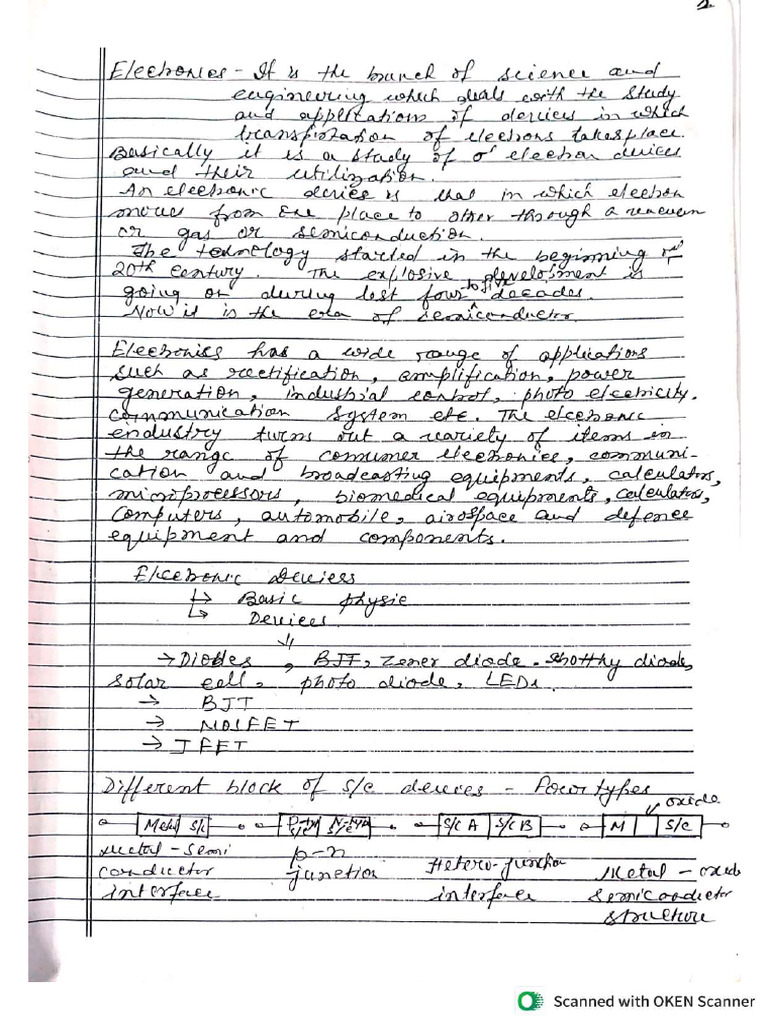 Electronics - It is the branch of science and
engineering which deals with the study
and applications of devices in which
transportation of electrons takes place.
Basically it is a study of electron devices
and their utilization.
An electronic device is that in which electron
moves from one place to other through a vacuum
or gas or semiconduction.
The technology started in the beginning of
20th century. The explosive development is
going on during last four to five decades.
Now it is the era of semiconductor
Electronics has a wide range of applications
such as rectification, amplification, power
generation, industrial control, photo electricity.
communication system etc. The electronic
endustry turns out a variety of items in
the range of consumer electronics, communi-
cation and broadcasting equipments, calculators,
microprocessors, biomedical equipments, calculators,
Computers, automobile, airospace and defence
equipment and components.
Electronic Devices
↳ Basic physic
↳ Devices
⇓
→ Diodes, BJT, Zener diode. Shottky diode,
Solar cell, photo diode, LEDs.
→ BJT
→ MOSFET
→ JFET
Different block of S/C devices - Four types
oxide
Metal S/C S/C A S/C B M S/C
Metal - Semi p-n Hetero-junction Metal - oxide
conductor junction interface Semiconductor
interface structure
Scanned with OKEN Scanner